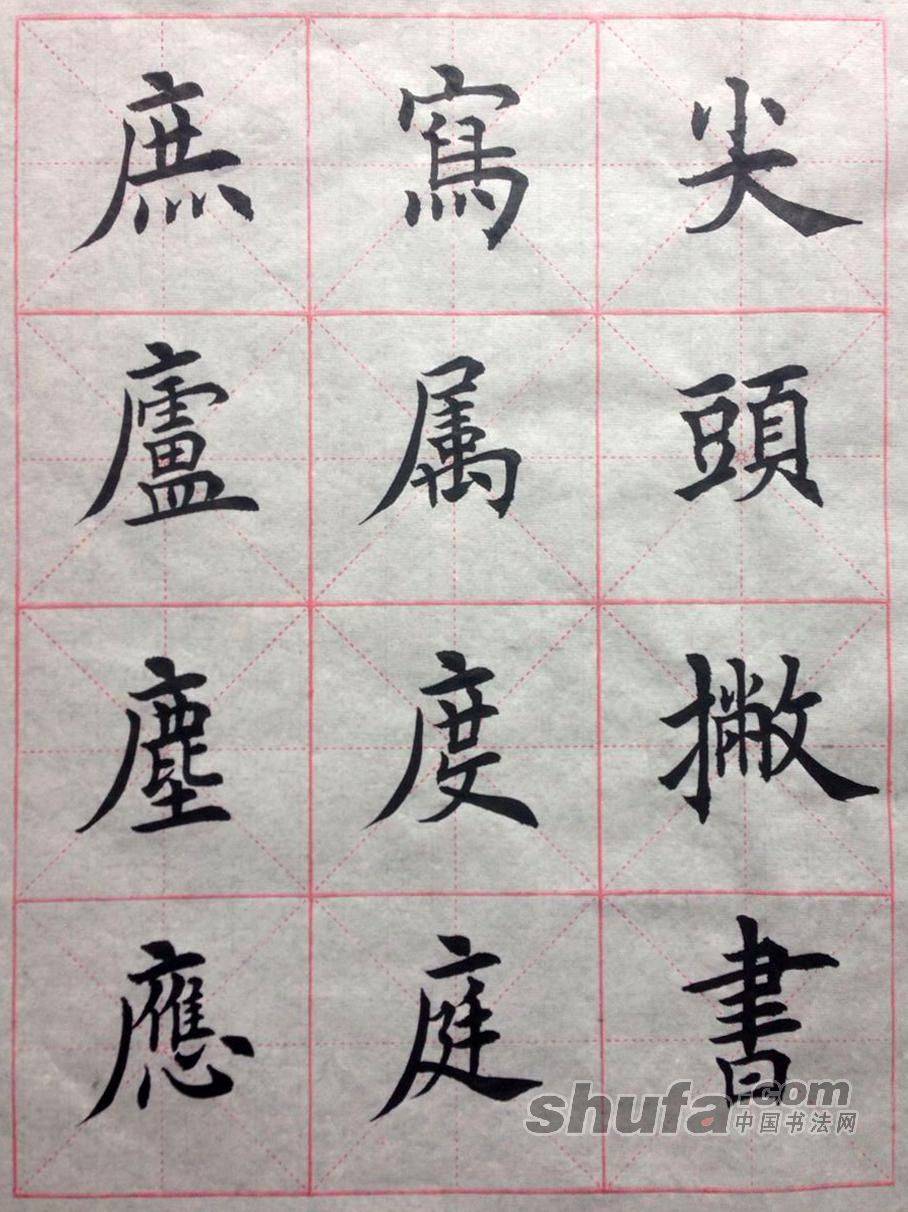 尖頭撇書
寫属度庭
庶廬塵應
shufa.com
中国书法网